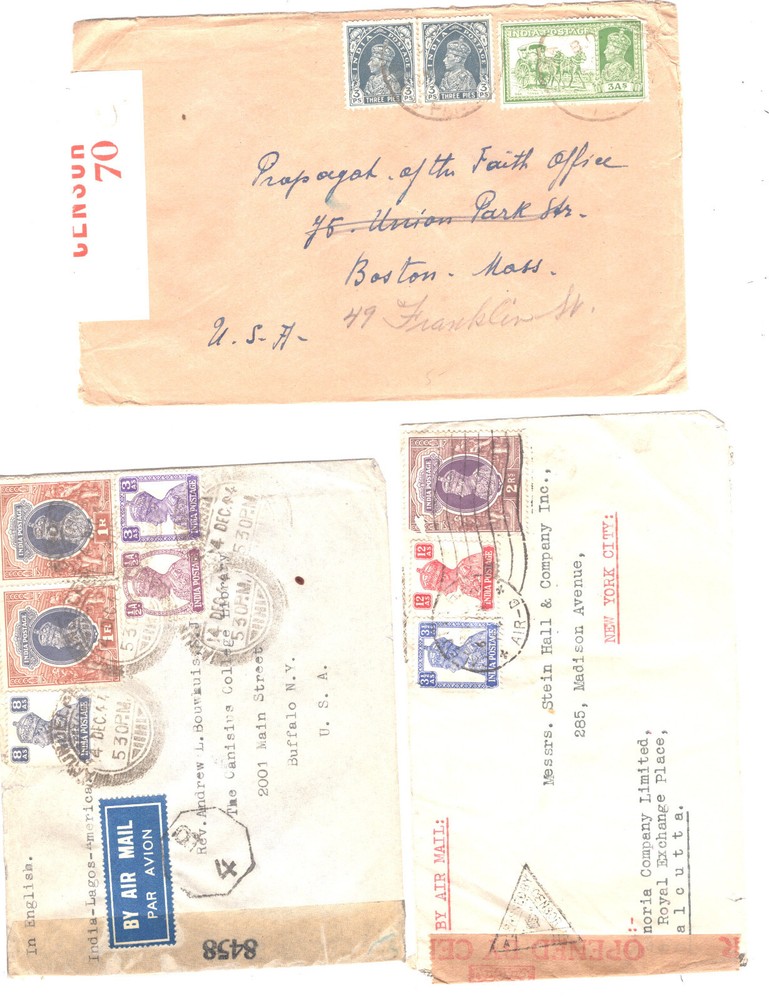 INDIA POSTAGE
3 PS THREE PIES 3 PS
INDIA POSTAGE
3 PS THREE PIES 3 PS
INDIA POSTAGE
3 As
CENSOR
70
Propagat. of the Faith Office
75. Union Park Str.
Boston - Mass.
49 Franklin St.
U.S.A-
INDIA POSTAGE
1 R
INDIA POSTAGE
1 R
3 AS
INDIA POSTAGE
1½ AS
INDIA POSTAGE
8 AS
INDIA POSTAGE
14 DEC. 44
5 30 PM.
14 DEC.
5 30 PM.
4 DEC. 44
5 30 PM.
Rev. Andrew L. Bouwhuis, S.J
The Canisius College Library
2001 Main Street
Buffalo N.Y.
U. S. A.
In English.
India-Lagos-America
BY AIR MAIL
PAR AVION
8458
INDIA POSTAGE
2 Rs
12 AS
INDIA POSTAGE
3½ AS
INDIA POSTAGE
AIR
Messrs. Stein Hall & Company Inc.,
285, Madison Avenue,
NEW YORK CITY:
BY AIR MAIL:
:-
noria Company Limited,
Royal Exchange Place,
alcutta.
OPENED BY CE
R